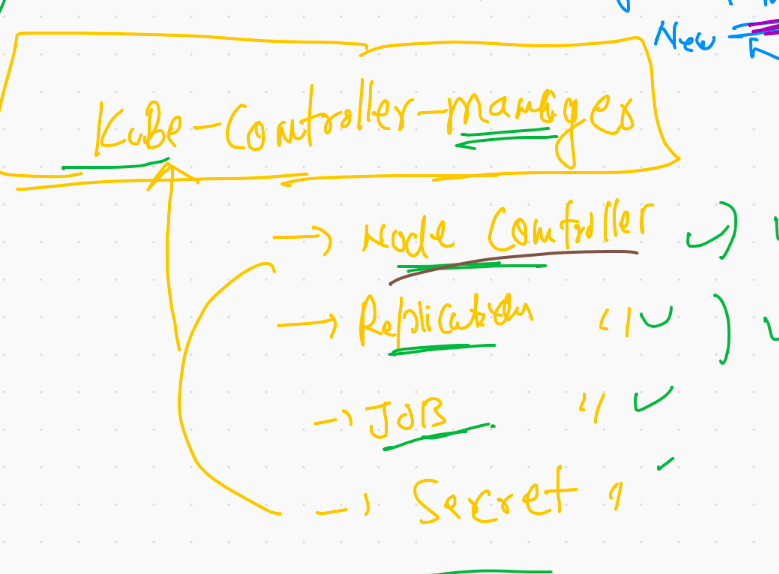 New
Kube-Controller-manager
→ Node Controller
→ Replication "
→ JOB "
→ Secret "